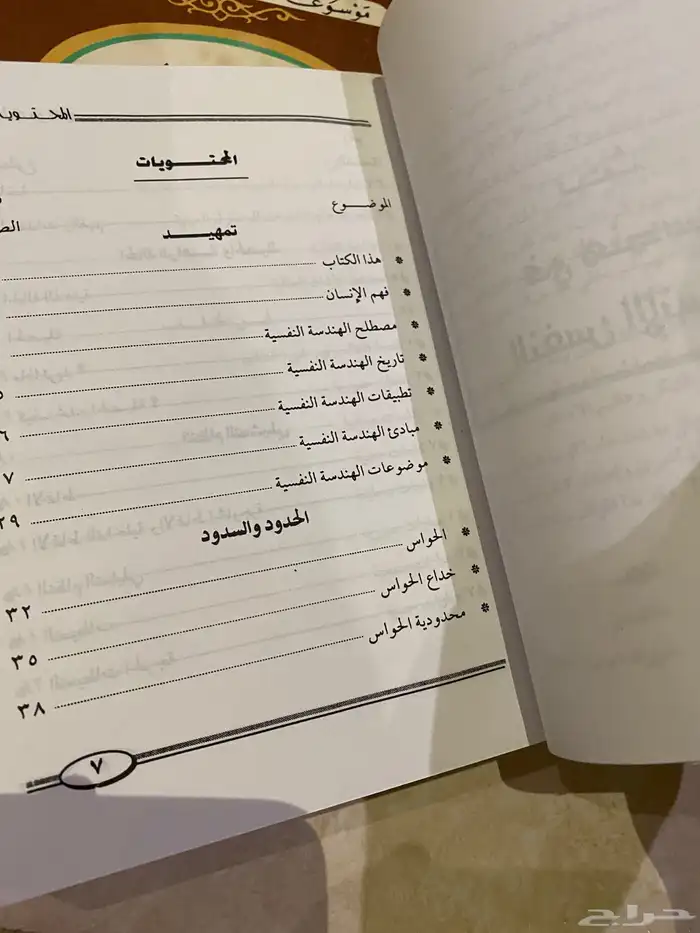 موسوعـ
المحتويـ
المحتـــويات
الموضـــوع
الص
تمهيـــد
* هذا الكتاب
* فهم الإنسان
* مصطلح الهندسة النفسية
* تاريخ الهندسة النفسية ٥
* تطبيقات الهندسة النفسية ٦
* مبادئ الهندسة النفسية ٧
* موضوعات الهندسة النفسية ٢٩
الحدود والسدود
* الحواس ٣٢
* خداع الحواس ٣٥
* محدودية الحواس ٣٨
٧
حراج